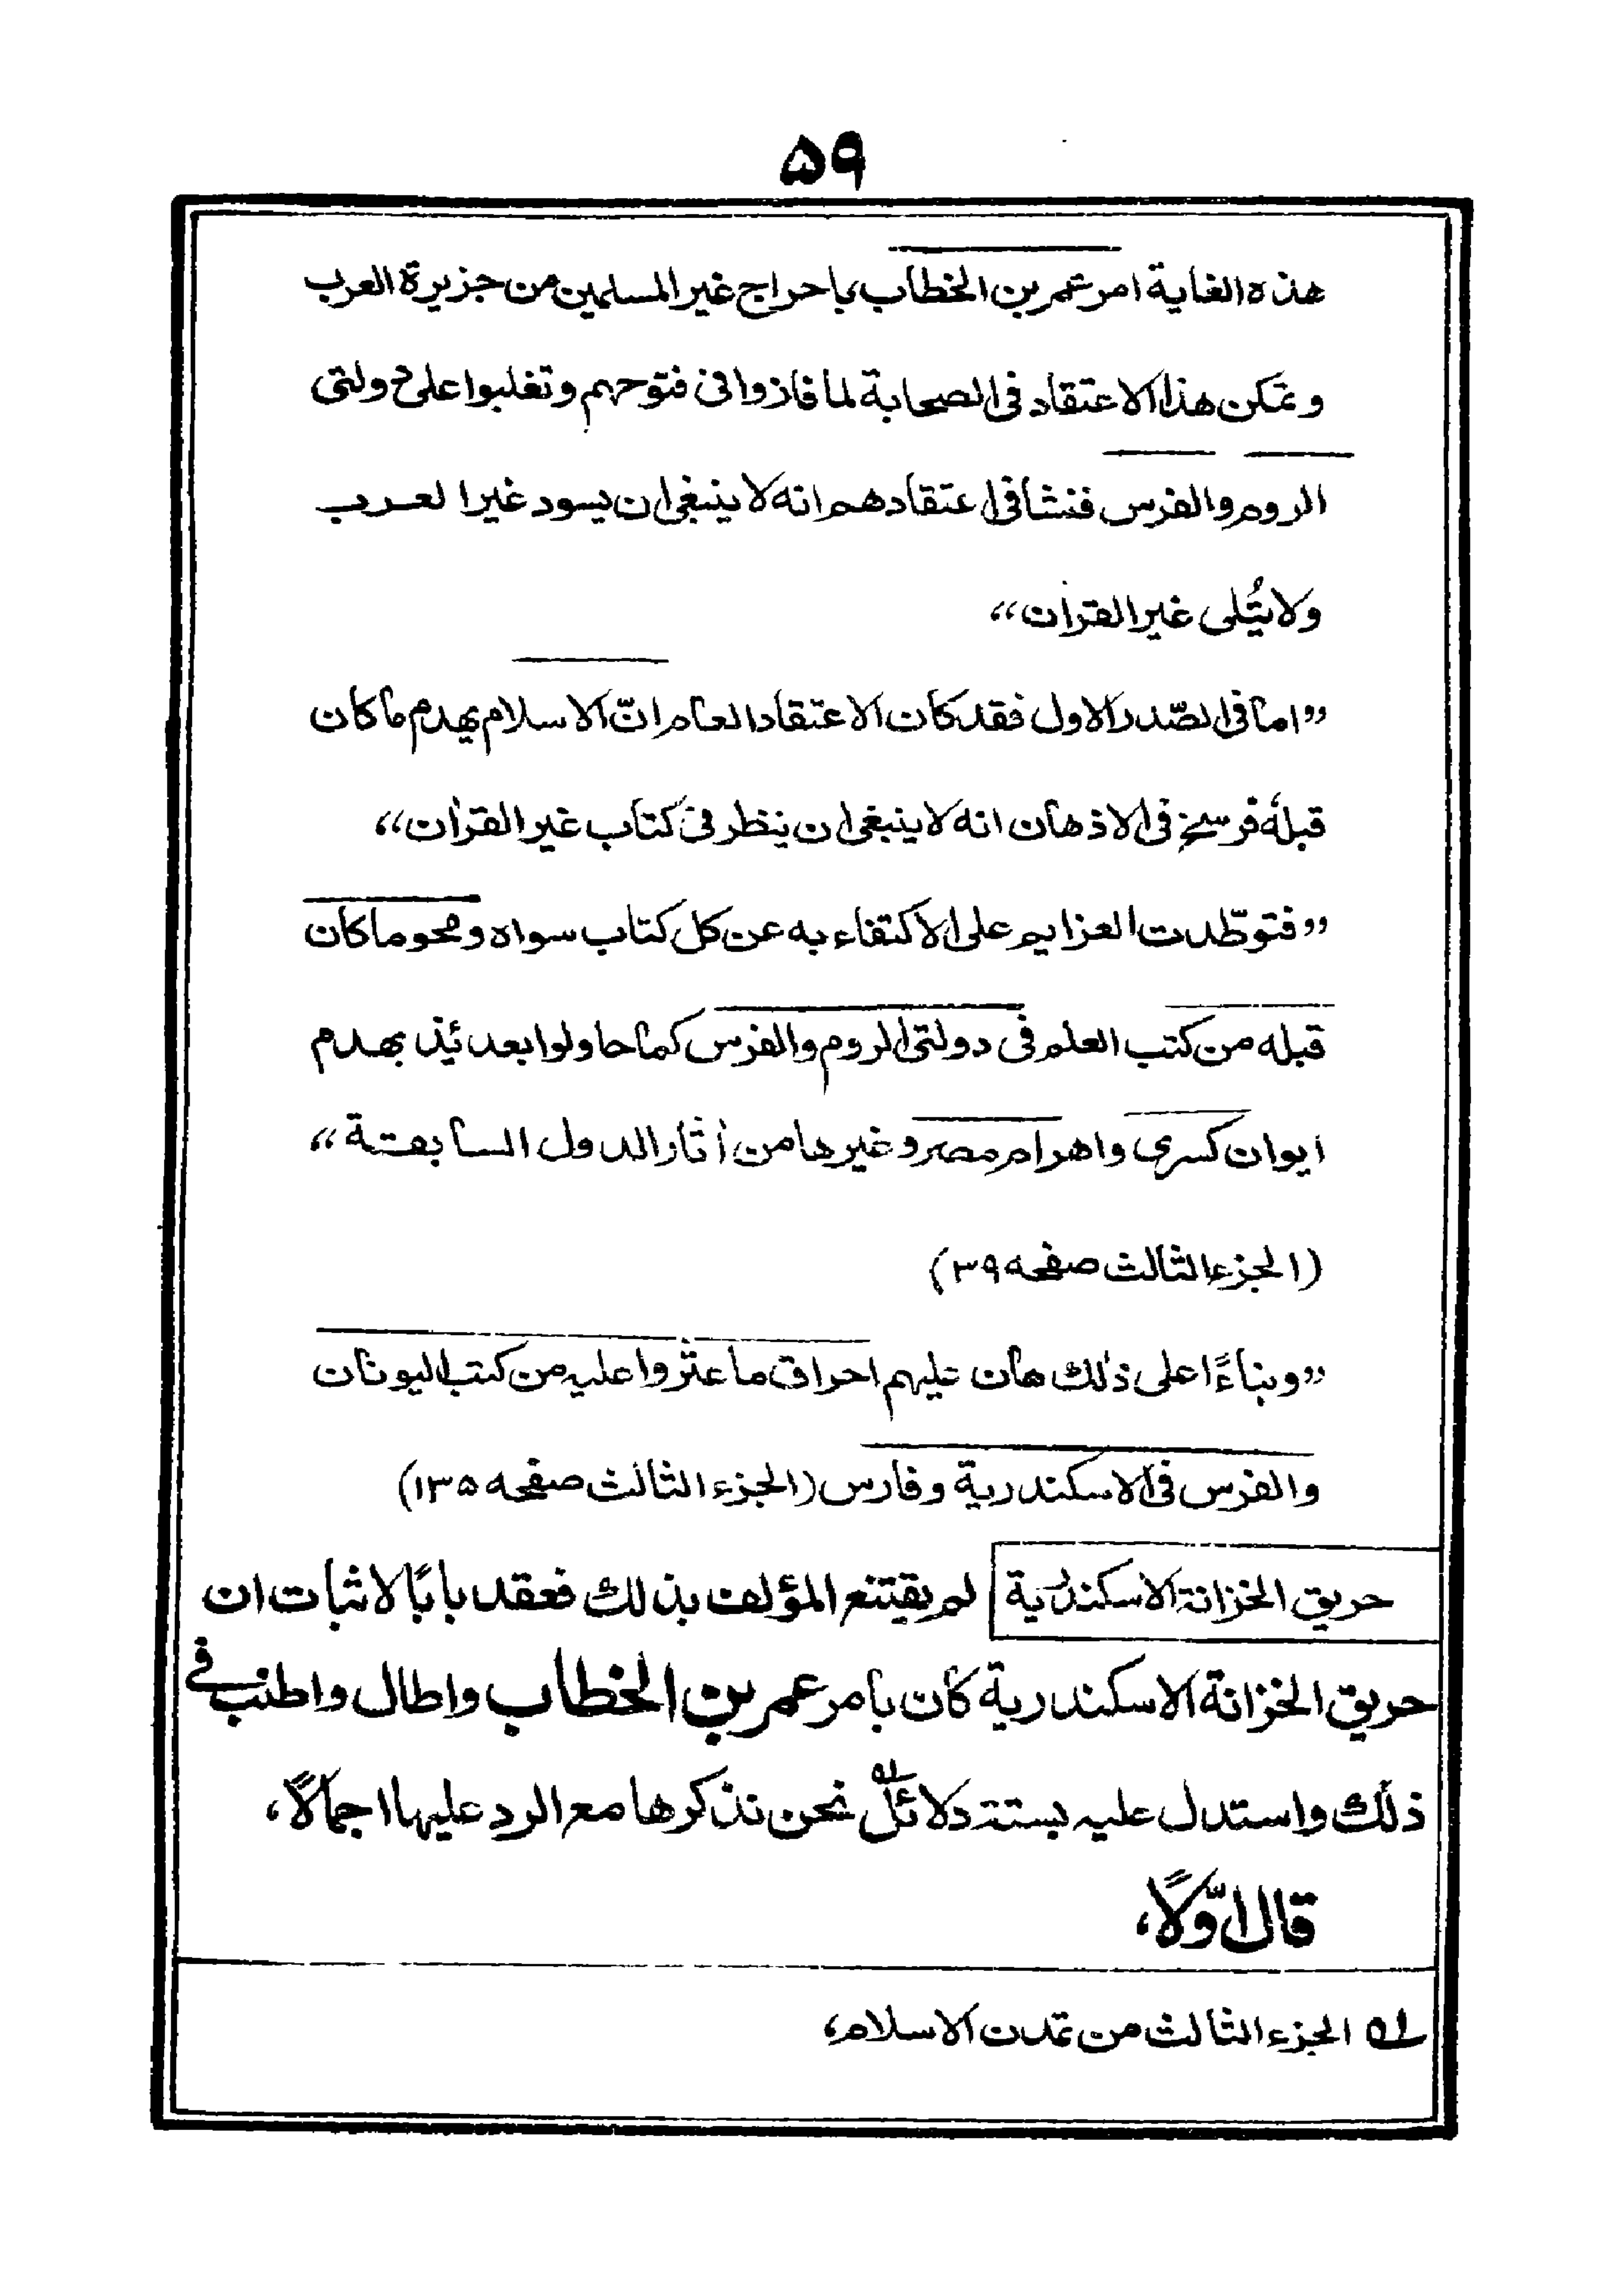 ۵۹
هذه الغاية امر عمر بن الخطاب باخراج غير المسلمين من جزيرة العرب
وتمكن هذا الاعتقاد فى الصحابة لما فازوا فى فتوحهم وتغلبوا على دولتى
الروم والفرس فنشا فى اعتقادهم انه لا ينبغى ان يسود غير العرب
ولا يُتلى غير القران“
”اما فى الصّدر الاول فقد كان الاعتقاد العام انّ الاسلام يهدم ما كان
قبله فرسخ فى الاذهان انه لا ينبغى ان ينظر فى كتاب غير القران“
”فتوطّدت العزايم على الاكتفاء به عن كل كتاب سواه ومحو ما كان
قبله من كتب العلم فى دولتى الروم والفرس كما حاولوا بعد ئذ بهدم
ايوان كسرى واهرام مصر وغيرها من اثار الدول السابقة“
(الجزء الثالث صفحه ۳۹)
”وبناءً اعلى ذلك هان عليهم احراق ما عثروا عليه من كتب اليونان
والفرس فى الاسكندرية وفارس (الجزء الثالث صفحه ۱۳۵)
حريق الخزانة الاسكندرية لم يقتنع المؤلف بذلك فعقد بابًا لاثبات ان
حريق الخزانة الاسكندرية كان بامر عمر بن الخطاب واطال واطنب فى
ذلك واستدل عليه بستة دلائل ؁۱ نحن نذكرها مع الرد عليها اجمالًا،
قال اوّلًا،
؁۱ الجزء الثالث من تمدن الاسلام،